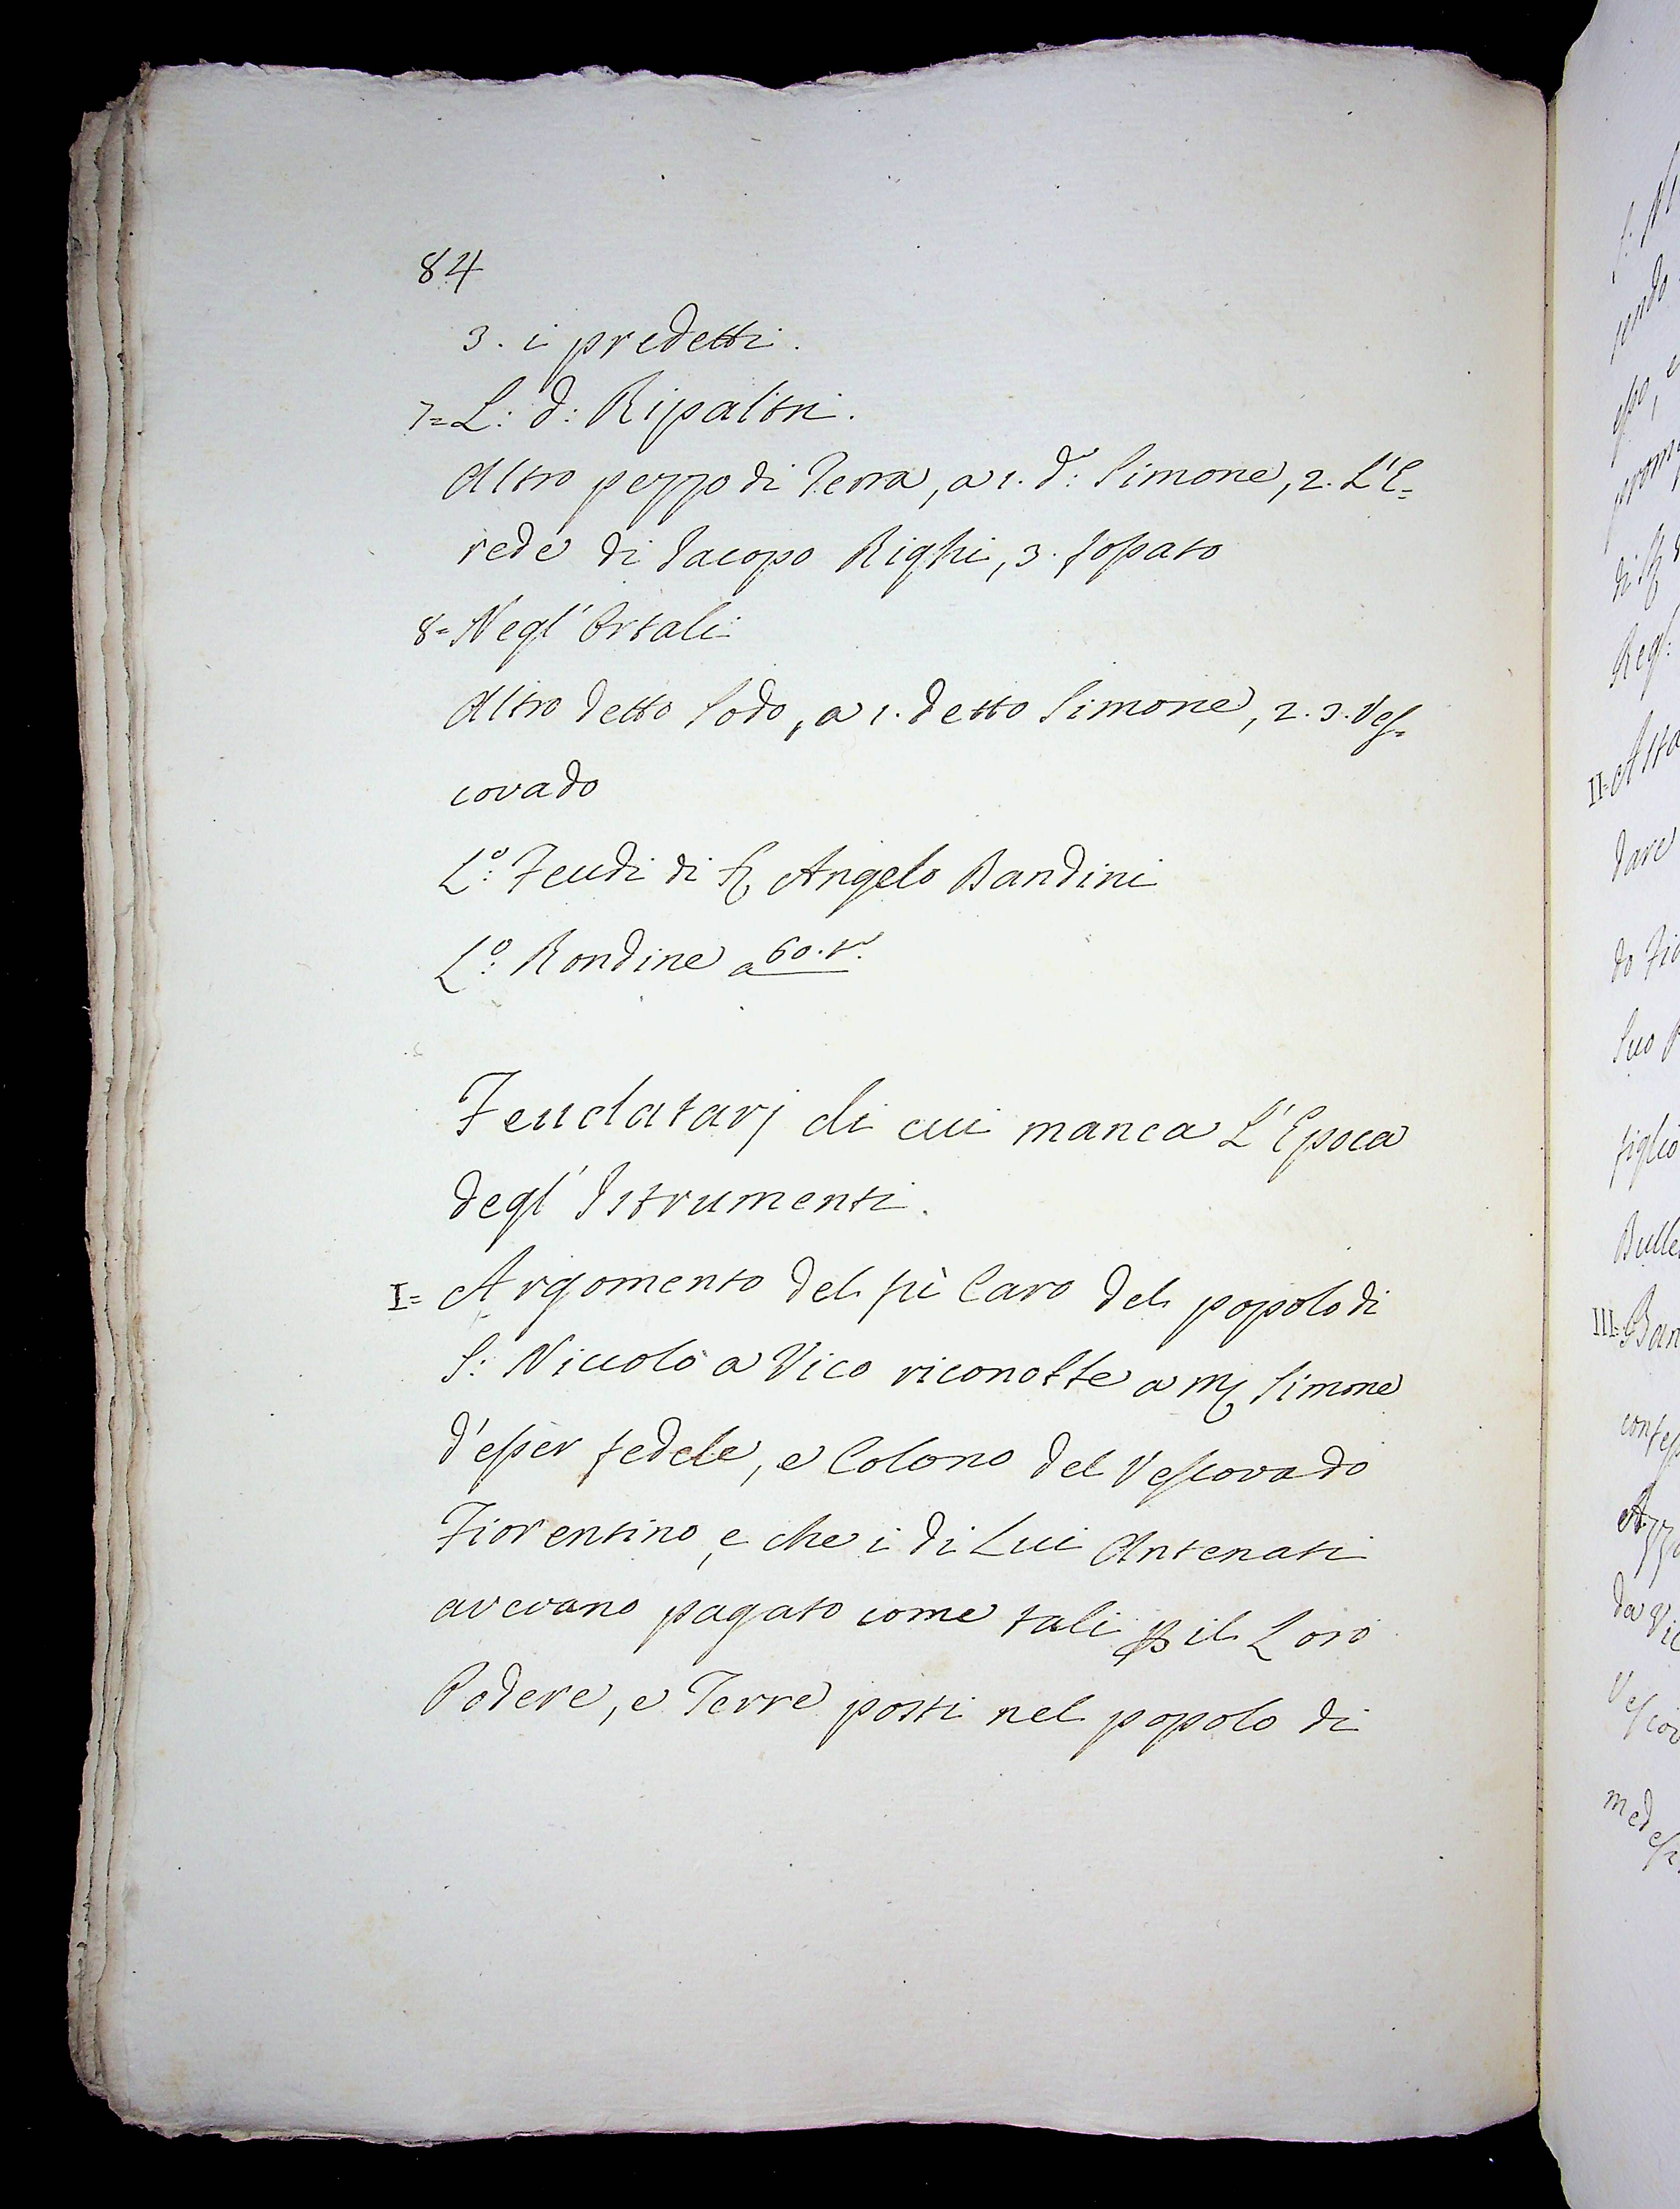 84
3. i predetti.
7= L: d: Ripaltri.
Altro pezzo di Terra, a 1. d.º Simone, 2. L'E=
rede di Iacopo Righi, 3. fossato
8= Negl' Ortali
Altro detto Sodo, a 1. detto Simone, 2. 3. Ves=
covado
L.º Feudi di Angelo Bandini
L.º Rondine a 60.t.
Feudatarj di cui manca L'Epoca
degl' Istrumenti.
I= Argomento del fù Caro del popolo di
S: Niccolò a Vico riconobbe a Simone
d'esser fedele, e Colono del Vescovado
Fiorentino, e che i di Lui Antenati
avevano pagato come tali p il Loro
Podere, e Terre posti nel popolo di
II=
dare
do Fio
Suo
figlio
III= Ban
confess
da Vic
Vescov